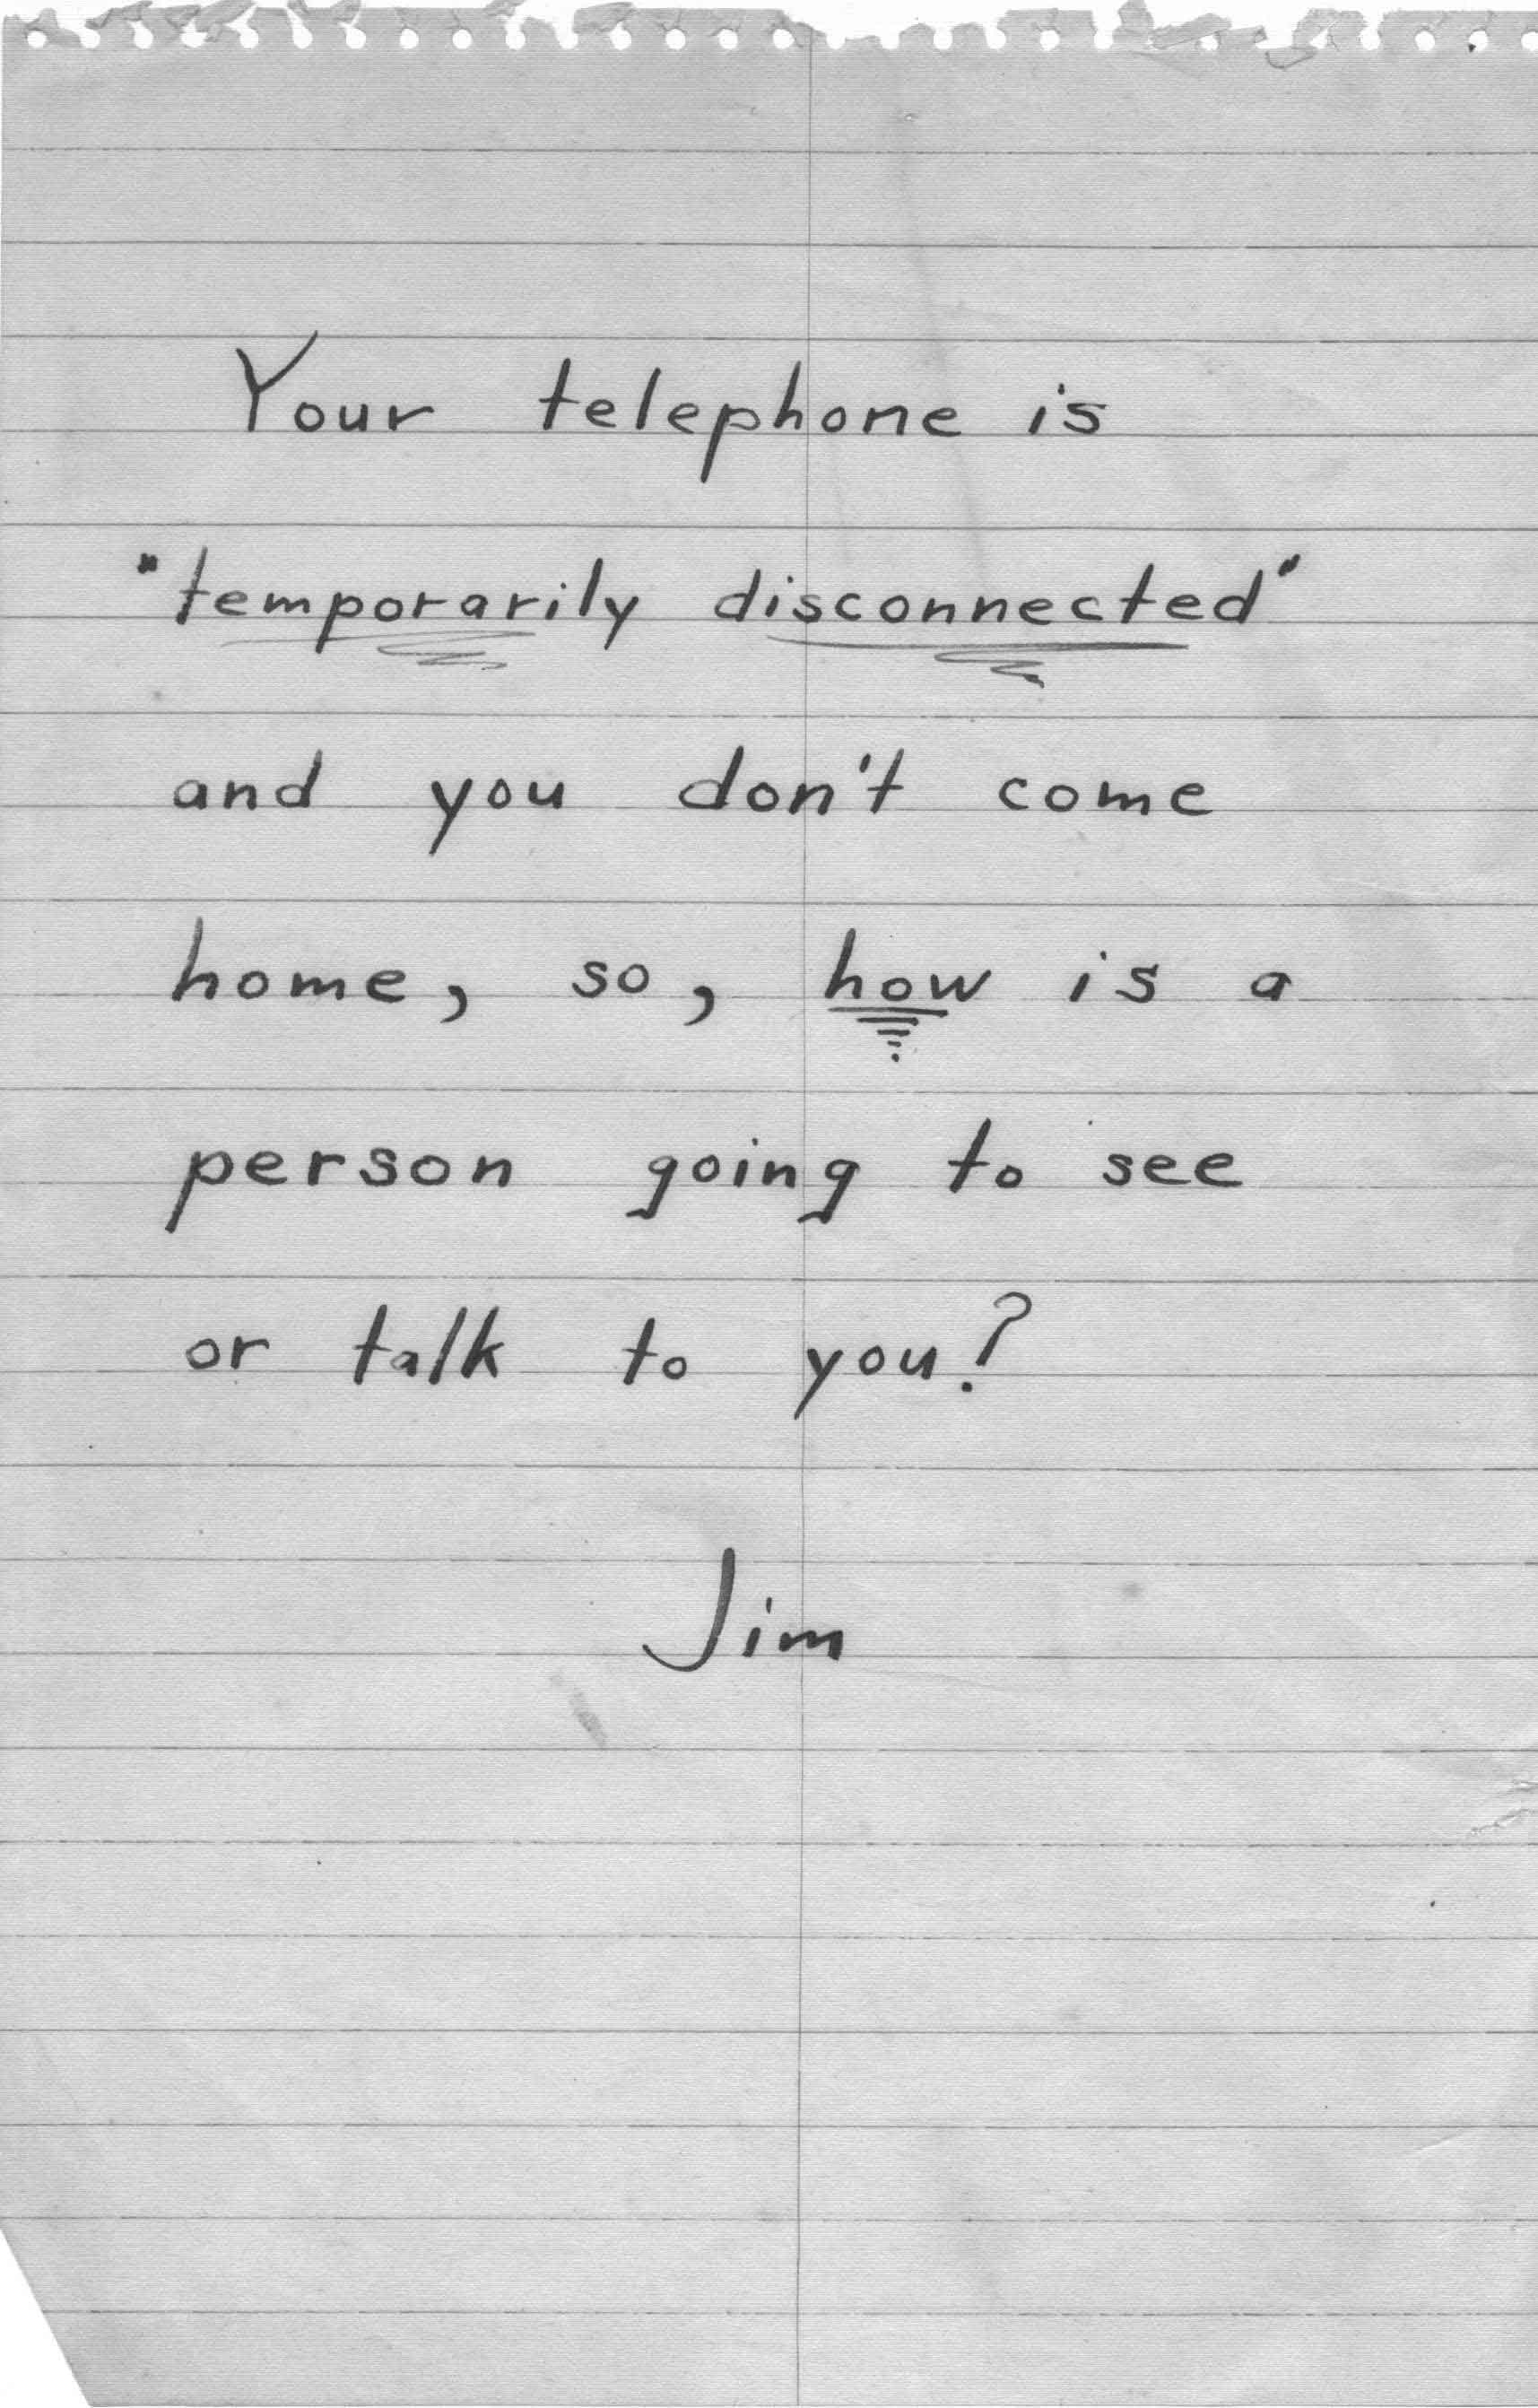 Your telephone is
"temporarily disconnected"
and you don't come
home, so, how is a
person going to see
or talk to you?
Jim